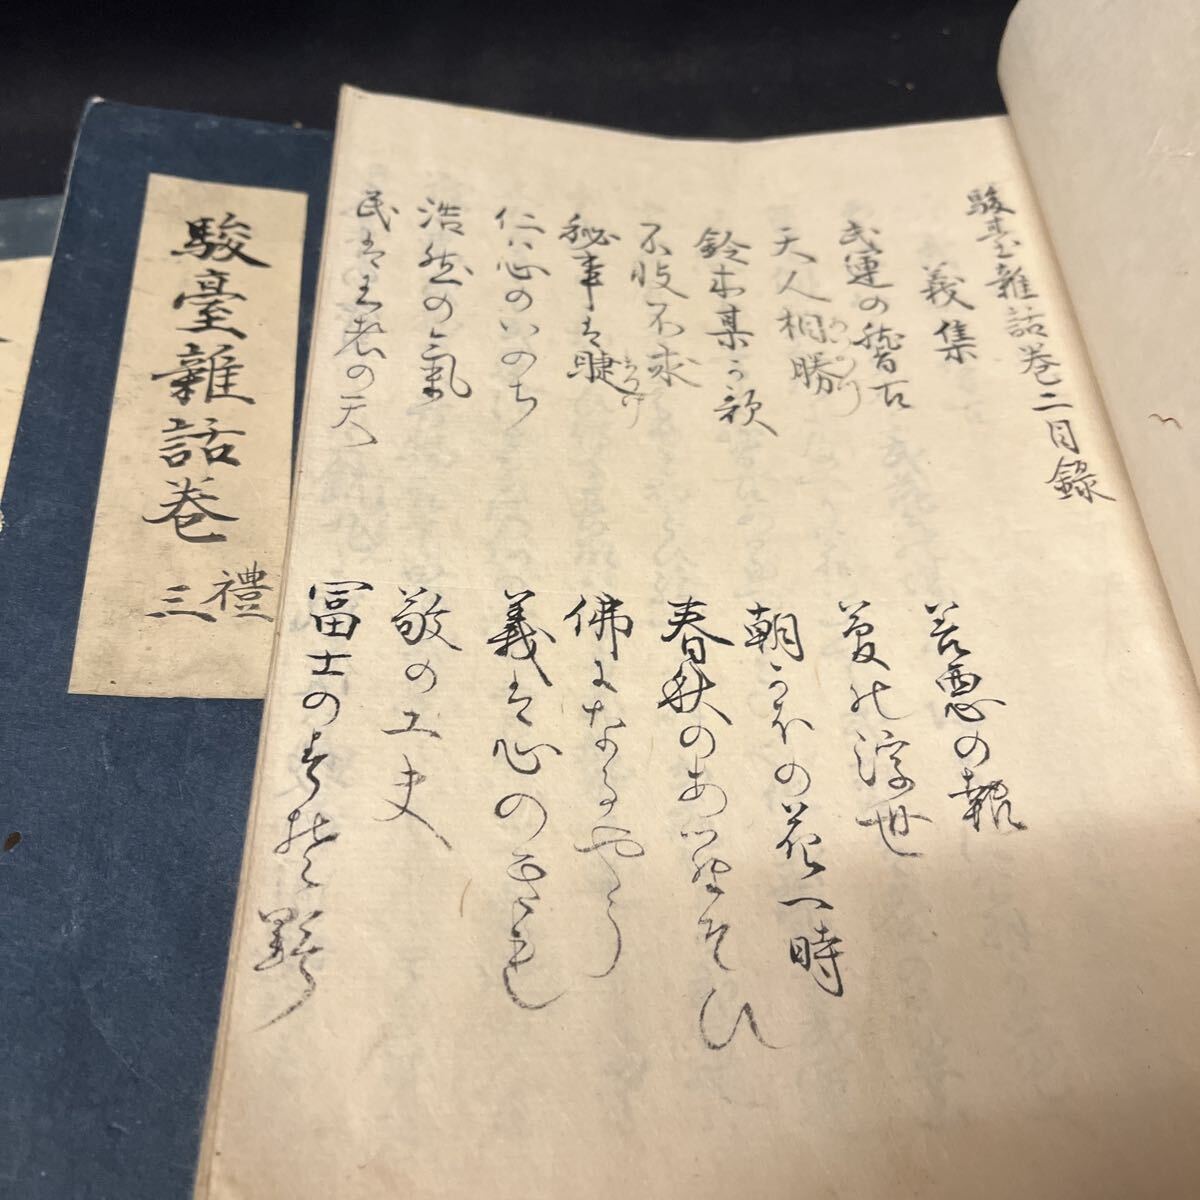 駿臺雜話巻二目録
義集
武運の稽古
善悪の報
天人相勝
夢の浮世
鈴木某か歌
朝かほの花一時
不忮不求
春秋のあらそひ
秘事は睫
まつけ
佛になるやう
仁は心のいのち
義は心の
浩然の氣
敬の工夫
民は王者の天
冨士の
駿臺雜話巻
禮
三